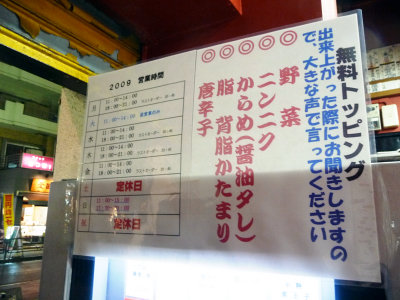 無料トッピング
出来上がった際にお聞きしますの
で、大きな声で言ってください
◎野菜
◎ニンニク
◎からめ(醤油タレ)
◎脂 背脂かたまり
◎唐辛子
2009 営業時間
月 11:00~14:00
18:00~21:00
火 11:00~14:00
水 11:00~14:00
18:00~21:00
木 11:00~14:00
18:00~21:00
金 11:00~14:00
18:00~21:00
土 定休日
日 11:00~15:00
祝 定休日